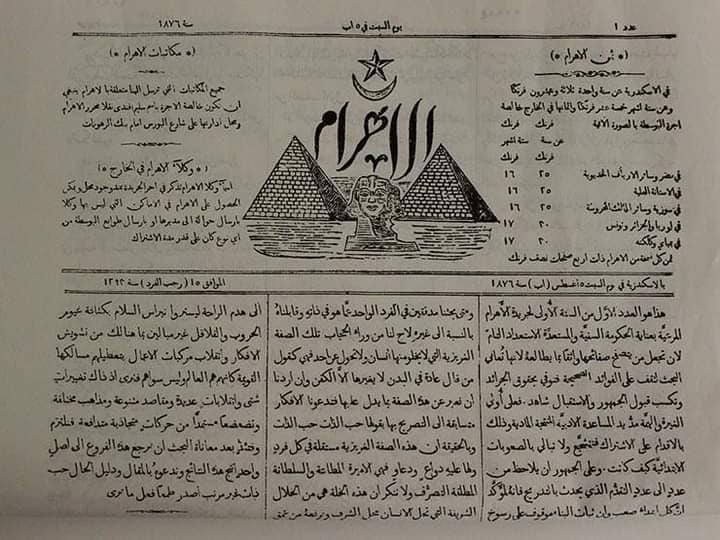 عدد ١
يوم السبت في ٥ اب
سنة ١٨٧٦
* ثمن الاهرام *
في الاسكندرية عن سنة واحدة ثلاثة وعشرون فرنكًا
وعن ستة اشهر خمسة عشر فرنكًا واثمانها في الخارج خالصة
اجرة البوسطة بالصورة الاتية
فرنك فرنك
عن سنة ستة اشهر
فرنك فرنك
في مصر وسائر الارياف الخديوية ٢٥ ١٦
في الاستانة العلية ٢٥ ١٦
في سورية وسائر الممالك المحروسة ٢٥ ١٦
في اوربا والجزائر وتونس ٢٠ ١٧
في بمباي وكلكته ٢٠ ١٧
ثمن كل نسخة من الاهرام ذات اربع صفحات نصف فرنك
الاهرام
* مكاتبات الاهرام *
جميع المكاتبات التي ترسل الينا متعلقة بالاهرام ينبغي
ان تكون خالصة الاجرة باسم سليم افندي نقلا محرر الاهرام
ومحل ادارتها على شارع البورس امام بنك الرهونات
* وكلآ الاهرام في الخارج *
اسمآ وكلا الاهرام تذكر في اخر الجريدة بعد وجود محل ويمكن
الحصول على الاهرام في الاماكن التي ليس بها وكلا
بارسال حوالة الى مديرها او بارسال طوابع البوسطة من
اي نوع كان على قدر مدة الاشتراك
بالاسكندرية في يوم السبت ٥ اغسطس (اب) سنة ١٨٧٦
الموافق ١٥ (رجب الفرد) سنة ١٢٩٣
هذا هو العدد الاوّل من السنة الأولى لجريدة الأهرام
المرتقية بعناية الحكومة السنية والمستعدّة الاستعداد التام
لان تجعل من يتصفح صفحاتها واثقًا بما يطالعه لانها تُعاني
البحث لتقف على الفوائد الصحيحة فتوفي بحقوق الجرائد
وتكسب قبول الجمهور والاستقبال شاهد. فعلى أولي
بالاقدام على الاشتراك ولا تبالي بالصعوبات
الابتدائية كيف كانت. وعلى الجمهور ان يلاحظ من
عددٍ الى عددٍ التقدّم الذي يحدث بالتدريج فانهُ لمؤكّد
ان كل ابتداء صعب وان ثبات البناء موقوف على رسوخ
ومتى بحثنا مدققين في الفرد الواحد عمّا هو في ذاته وقابلناهُ
بالنسبة الى غيره لاح لنا من وراء الحجاب تلك الصفة
الغريزية التي لا يخلو منها انسان ولا تحول عن احدٍ فهي كقول
من قال عادة في البدن لا يغيرها الا الكفن وان اردنا
ان نعبر عن هذه الصفة بما يدل عليها فتدعونا الافكار
متسابقة الى التصريح بها بقولها حب الذات حب الذات
وبالحقيقة ان هذه الصفة الغريزية مستقلة في كل فردٍ
ولها عليه دواعٍ ودعاوٍ فهي الاميرة المطاعة والسلطانة
المطلقة التصرّف ولا ننكر ان هذه الخلة هي من الخلال
الشريفة التي تحل الانسان محل الشرف وترفعهُ عن
الى هدم الراحة ليستروا نبراس السلام بكثافة غيوم
الحروب والقلاقل غير مبالين بما هنالك من تشويش
الافكار وانقلاب مركبات الاعمال بتعطيلهم مسالكها
القويمة كانهم هم العالم وليس سواهم فنرى اذ ذاك تغييراتٍ
شتى وانقلاباتٍ عديدة ومقاصد متنوعة ومذاهب مختلفة
وتضعضعًا مستمدًّا من حركات متجاذبة متدافعة. فنلتزم
وقتئذٍ بعد معاناة البحث ان نرجع هذه الفروع الى اصلٍ
واحدٍ انتج هذه النتائج وندعوهُ بالمقال ودليل الحال حب